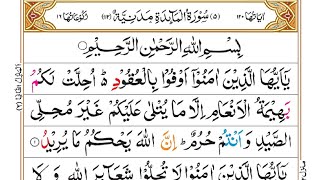 اٰيَاتُهَا ١٢٠ (٥) سُوْرَةُ الْمَآئِدَةِ مَدَنِيَّةٌ (١١٢) رُكُوْعَاتُهَا ١٦
بِسْمِ اللّٰهِ الرَّحْمٰنِ الرَّحِيْمِ
يٰۤاَيُّهَا الَّذِيْنَ اٰمَنُوْۤا اَوْفُوْا بِالْعُقُوْدِ ؕ اُحِلَّتْ لَكُمْ
بَهِيْمَةُ الْاَنْعَامِ اِلَّا مَا يُتْلٰى عَلَيْكُمْ غَيْرَ مُحِلِّي
الصَّيْدِ وَاَنْتُمْ حُرُمٌ ؕ اِنَّ اللّٰهَ يَحْكُمُ مَا يُرِيْدُ ①
يٰۤاَيُّهَا الَّذِيْنَ اٰمَنُوْا لَا تُحِلُّوْا شَعَآئِرَ اللّٰهِ وَلَا